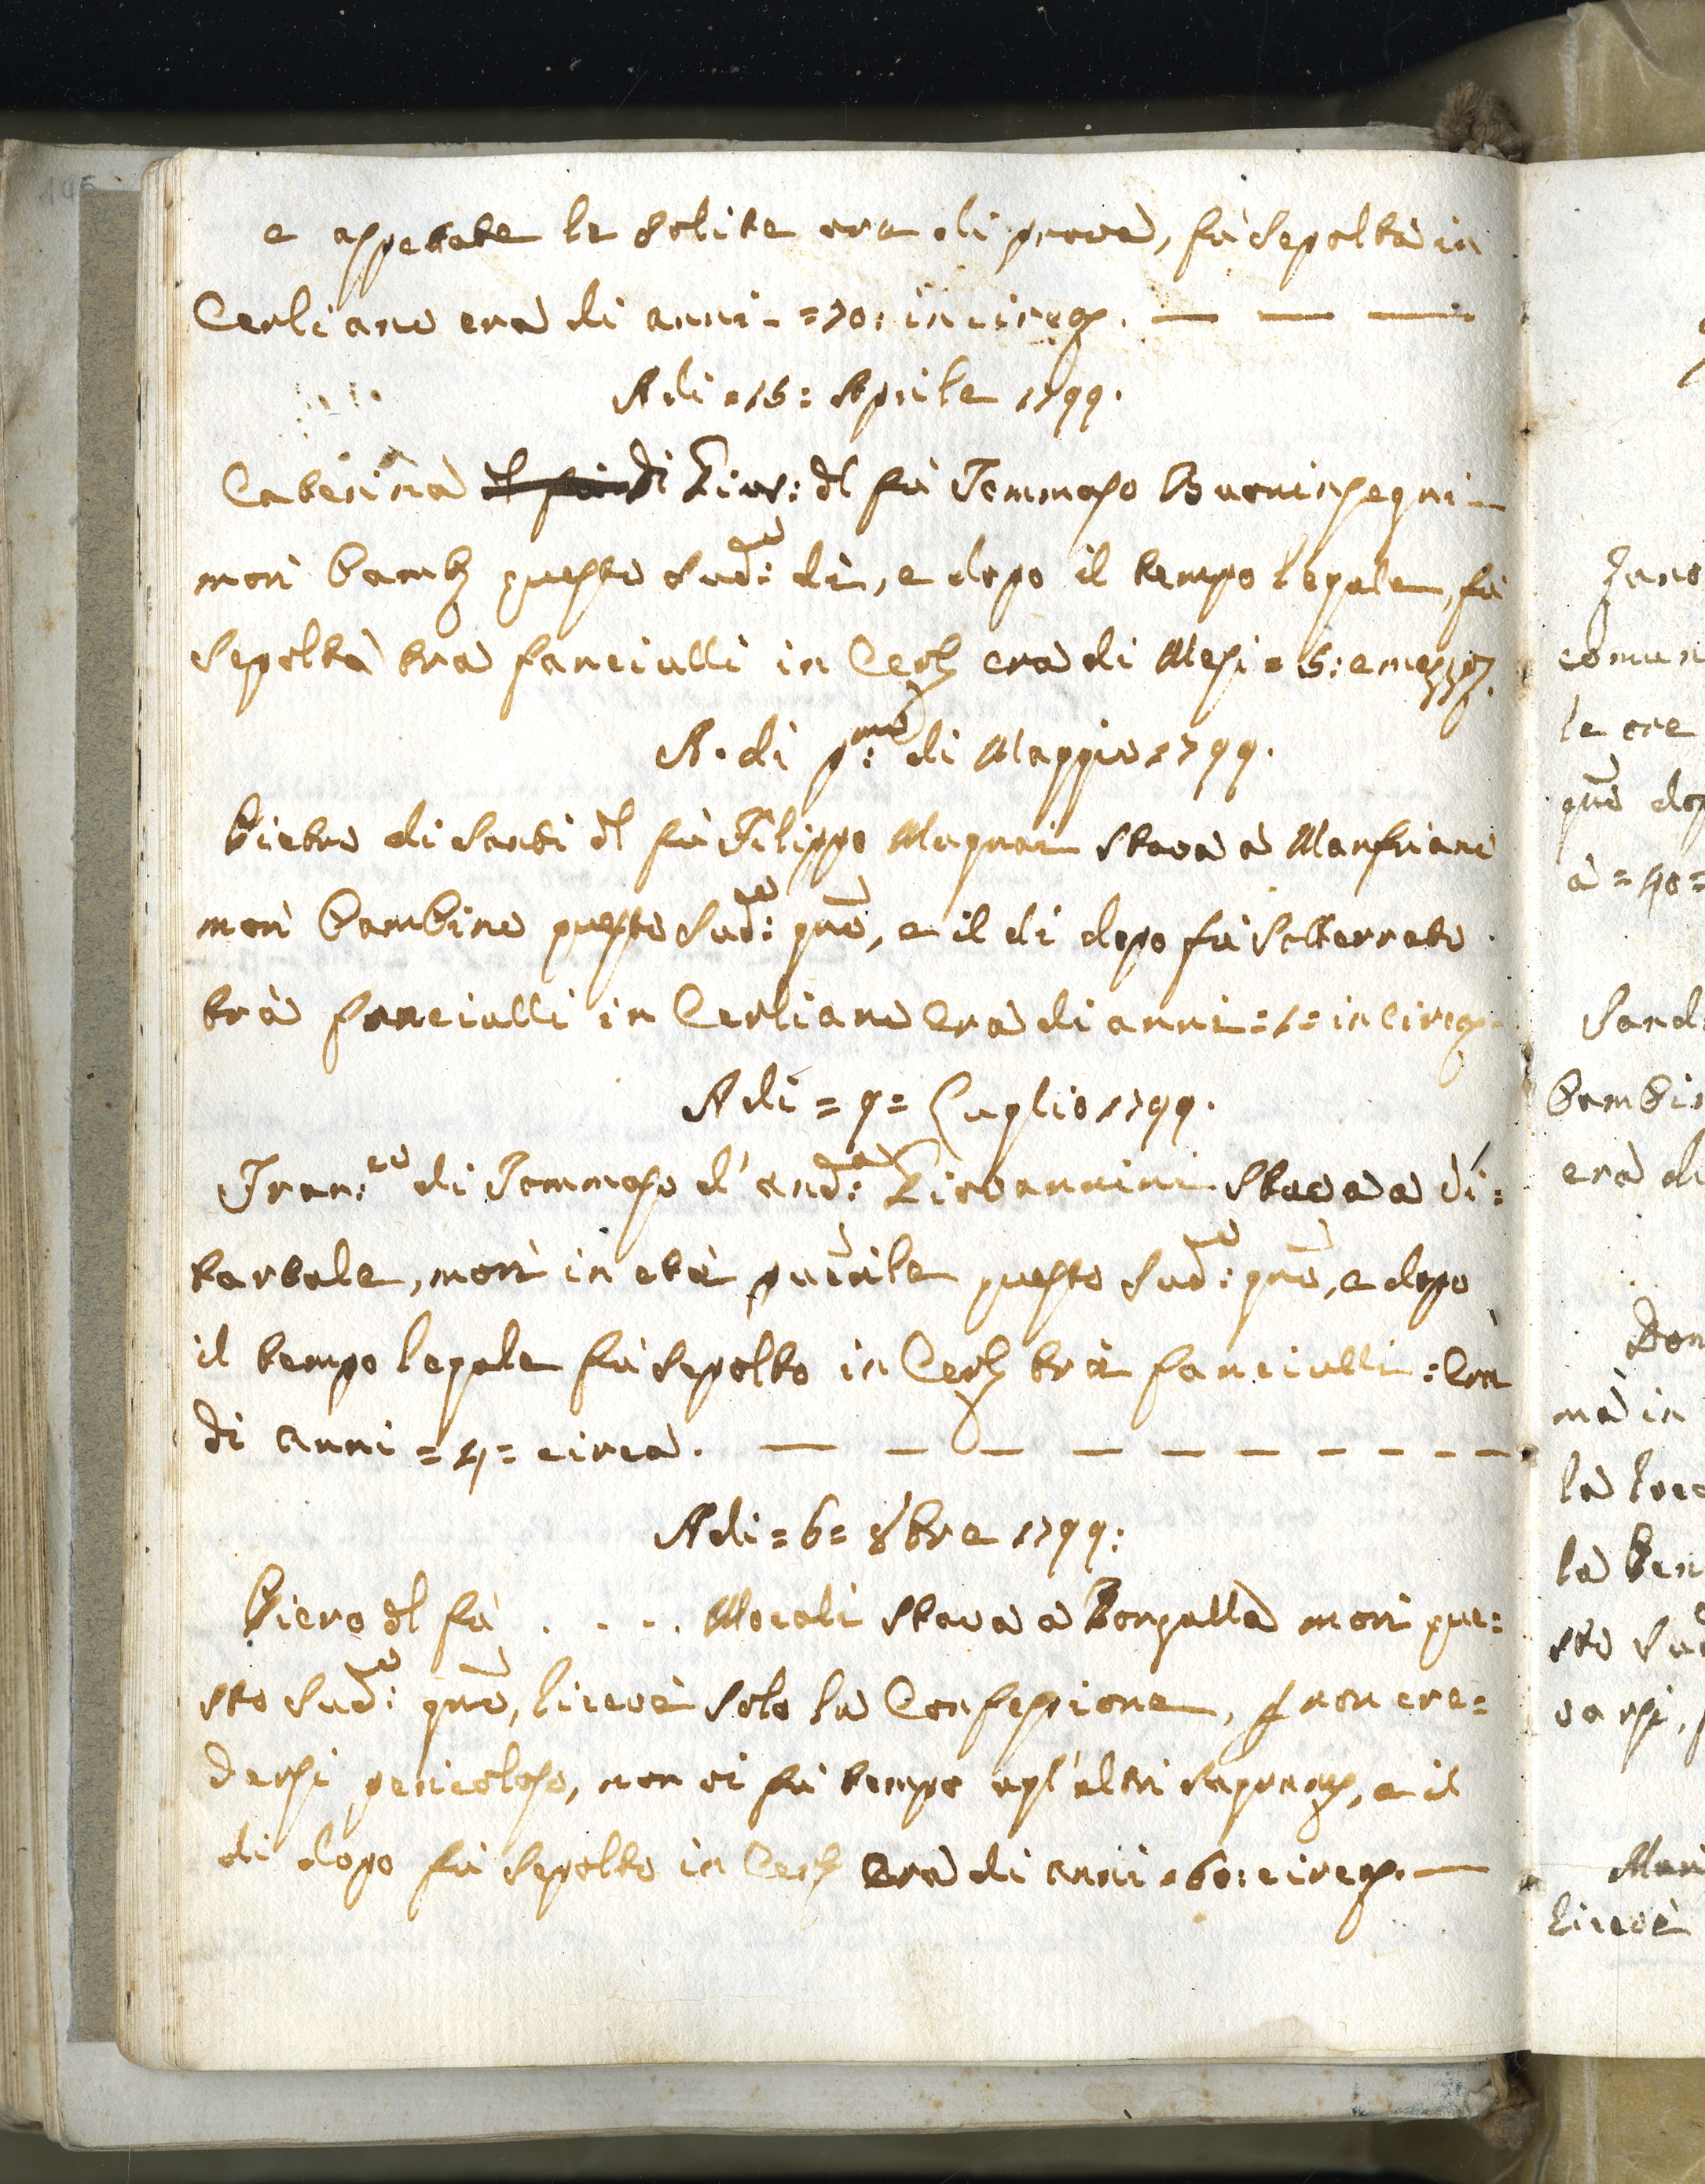 e aspettate le solite ore di prova, fù sepolta in
Cerliano era di anni = 70: in circa. — — —
A di = 15: Aprile 1799.
Caterina di Giov: del fù Tommaso Buoninsegni
morì bamb questo Sud:to dì, e dopo il tempo legale, fù
Sepolta tra fanciulli in Cerl era di Mesi = 5: e mezzo.
A. di p:mo di Maggio 1799.
Pietro di Santi del fù Filippo Magnai stava a Manfriano
morì bambino questo Sud:to gno, e il di dopo fù sotterrato
tra fanciulli in Cerliano Era di anni = 1 = in circa
A di = 9 = Luglio 1799.
Fran:co di Tommaso d'And:a Giovannini stava a Vi=
tarbole, morì in età puerile questo Sud:to gno, e dopo
il tempo legale fù sepolto in Cerl tra fanciulli: Era
di anni = 4 = circa. — — — — — — — — — —
A di = 6 = 8bre 1799:
Piero del fù . . . . Mocali stava a Bonzalla morì que:
sto Sud:to gno, licevè solo la Confessione, p non cre=
dersi pericoloso, non vi fù tempo agl'altri , e il
di dopo fù sepolto in Cerl Era di anni = 60: circa. —
Sand
Bambi
era di
Don
ma in
la
la Ben
Mari
licevè